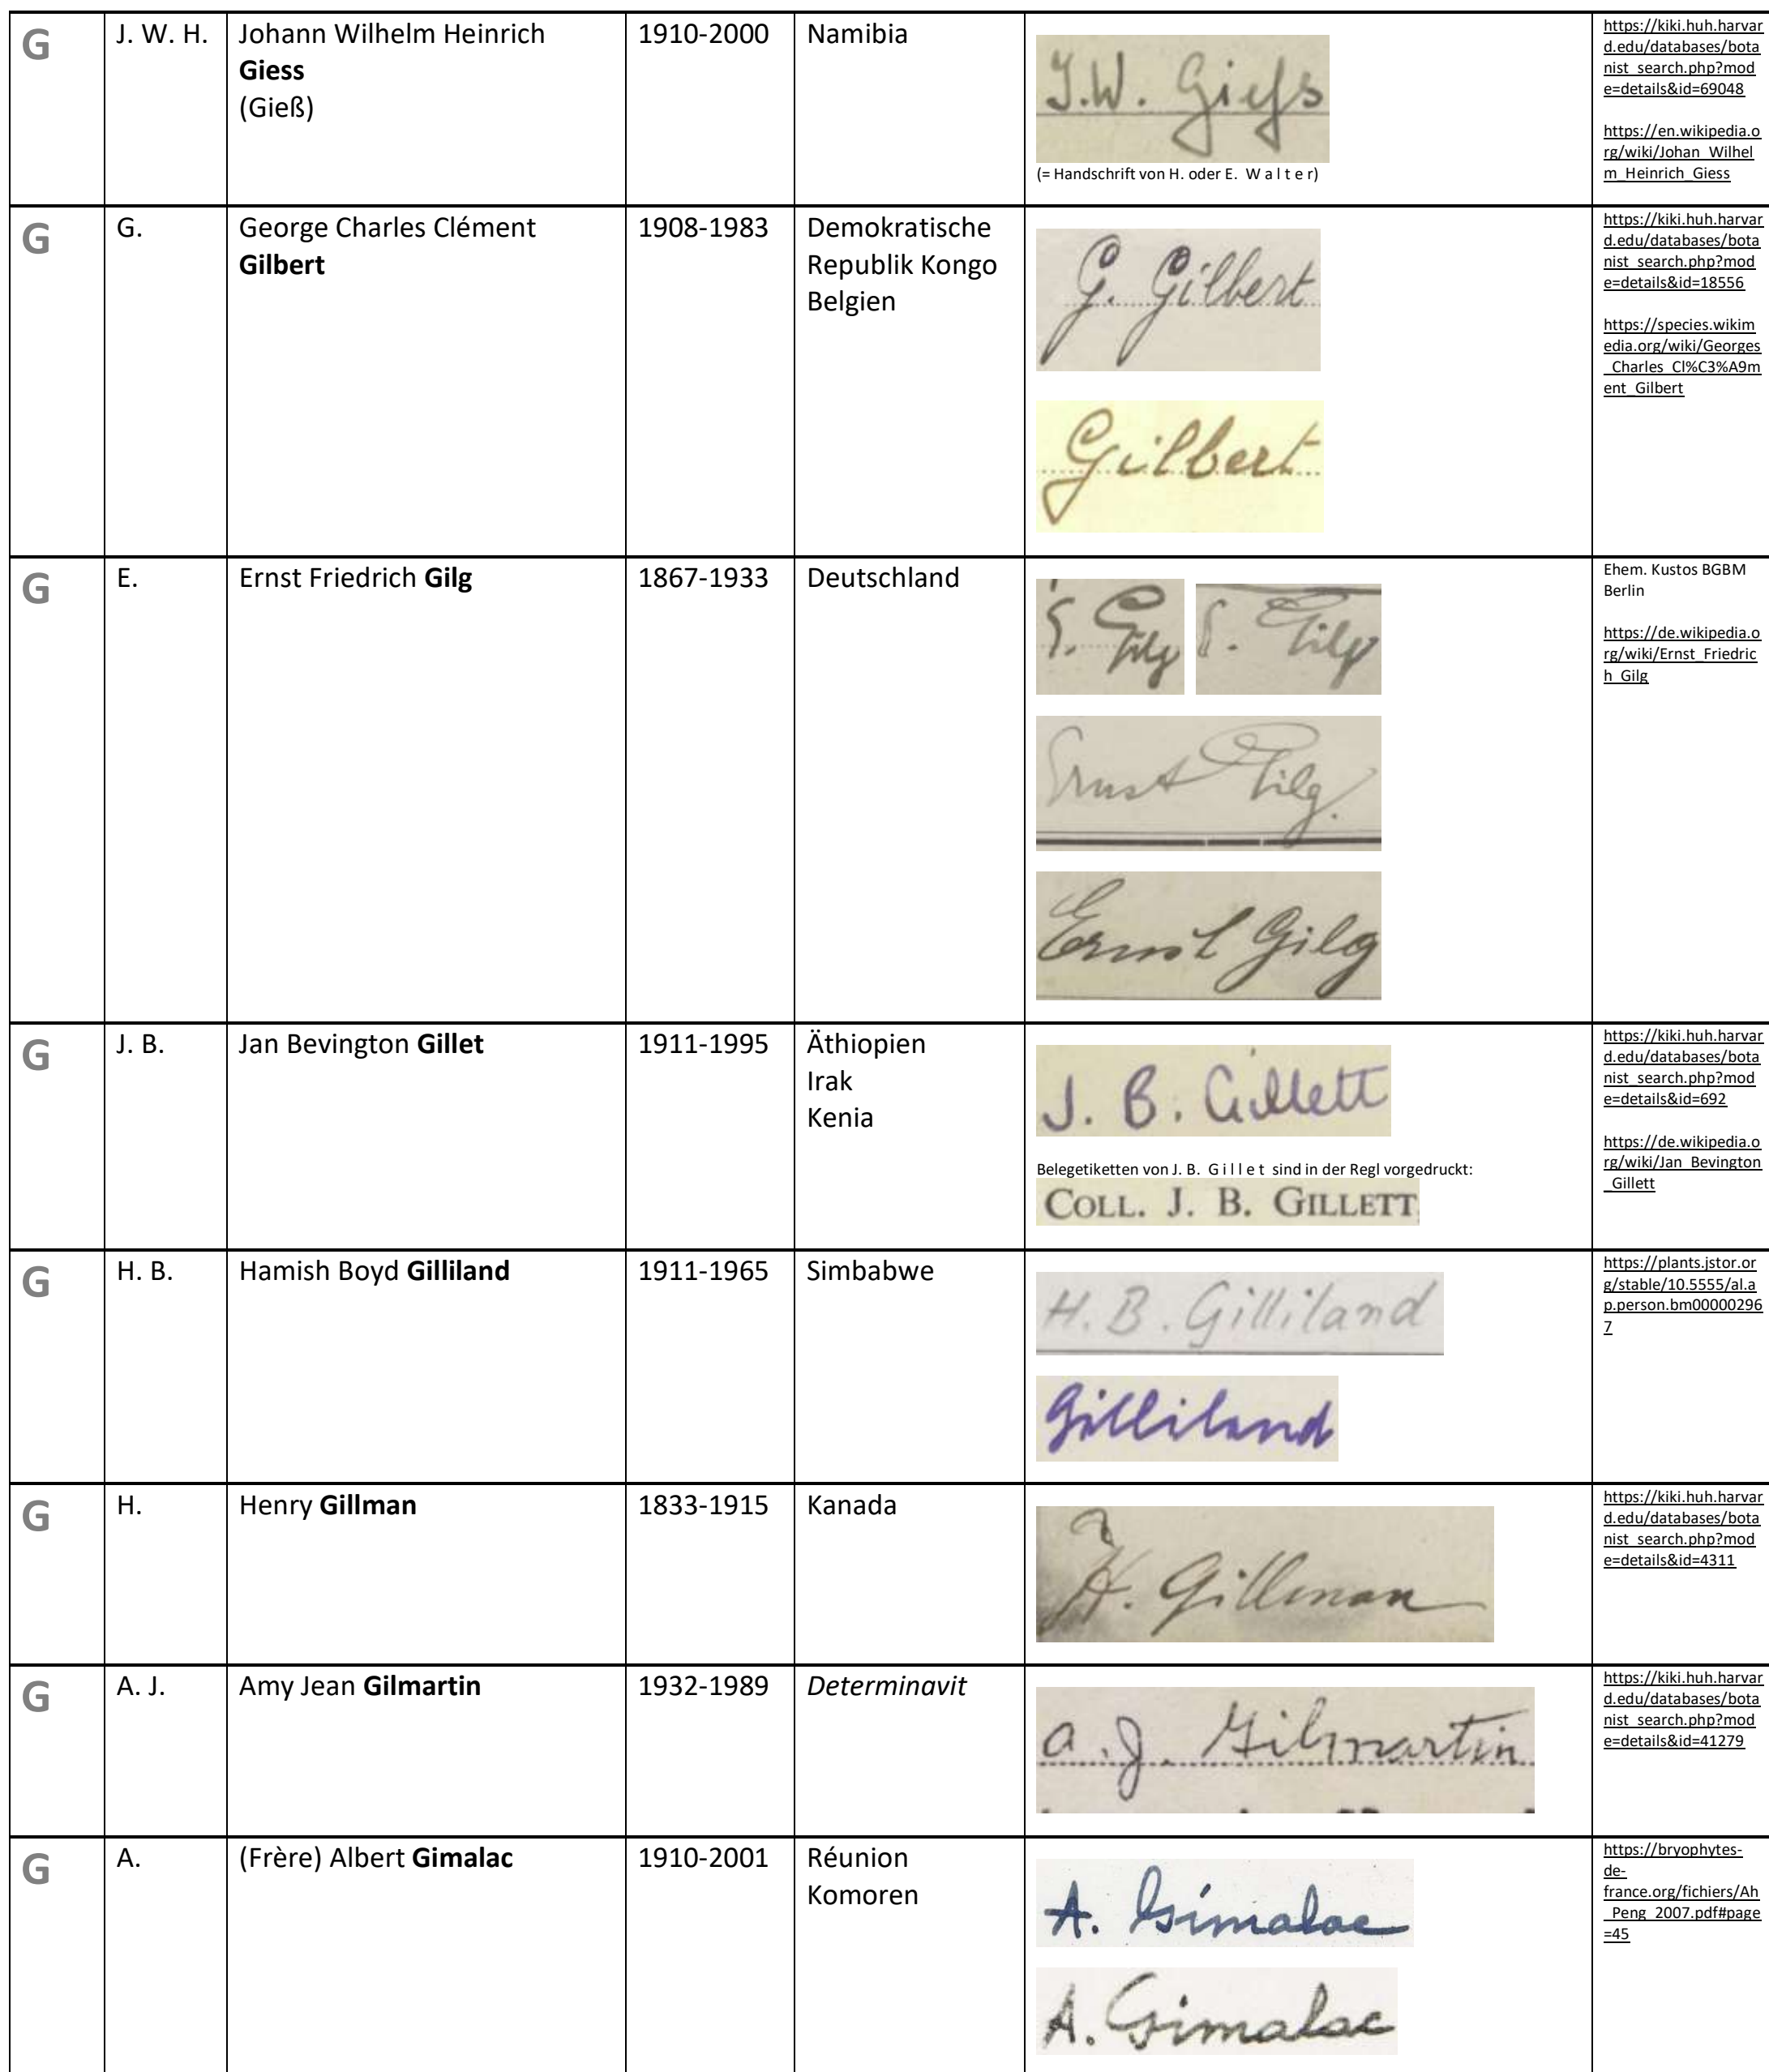 G
J. W. H.
Johann Wilhelm Heinrich
Giess
(Gieß)
1910-2000
Namibia
J.W. Gieſs
(= Handschrift von H. oder E. W a l t e r)
https://kiki.huh.harvar
d.edu/databases/bota
nist_search.php?mod
e=details&id=69048
https://en.wikipedia.o
rg/wiki/Johan_Wilhel
m_Heinrich_Giess
G
G.
George Charles Clément
Gilbert
1908-1983
Demokratische
Republik Kongo
Belgien
G. Gilbert
Gilbert
https://kiki.huh.harvar
d.edu/databases/bota
nist_search.php?mod
e=details&id=18556
https://species.wikim
edia.org/wiki/Georges
_Charles_Cl%C3%A9m
ent_Gilbert
G
E.
Ernst Friedrich Gilg
1867-1933
Deutschland
E. Gilg E. Gilg
Ernst Gilg.
Ernst Gilg
Ehem. Kustos BGBM
Berlin
https://de.wikipedia.o
rg/wiki/Ernst_Friedric
h_Gilg
G
J. B.
Jan Bevington Gillet
1911-1995
Äthiopien
Irak
Kenia
J. B. Gillett
Belegetiketten von J. B. G i l l e t sind in der Regl vorgedruckt:
COLL. J. B. GILLETT
https://kiki.huh.harvar
d.edu/databases/bota
nist_search.php?mod
e=details&id=692
https://de.wikipedia.o
rg/wiki/Jan_Bevington
_Gillett
G
H. B.
Hamish Boyd Gilliland
1911-1965
Simbabwe
H. B. Gilliland
Gilliland
https://plants.jstor.or
g/stable/10.5555/al.a
p.person.bm00000296
7
G
H.
Henry Gillman
1833-1915
Kanada
H. Gillman
https://kiki.huh.harvar
d.edu/databases/bota
nist_search.php?mod
e=details&id=4311
G
A. J.
Amy Jean Gilmartin
1932-1989
Determinavit
a. J. Gilmartin
https://kiki.huh.harvar
d.edu/databases/bota
nist_search.php?mod
e=details&id=41279
G
A.
(Frère) Albert Gimalac
1910-2001
Réunion
Komoren
A. Gimalac
A. Gimalac
https://bryophytes-
de-
france.org/fichiers/Ah
_Peng_2007.pdf#page
=45